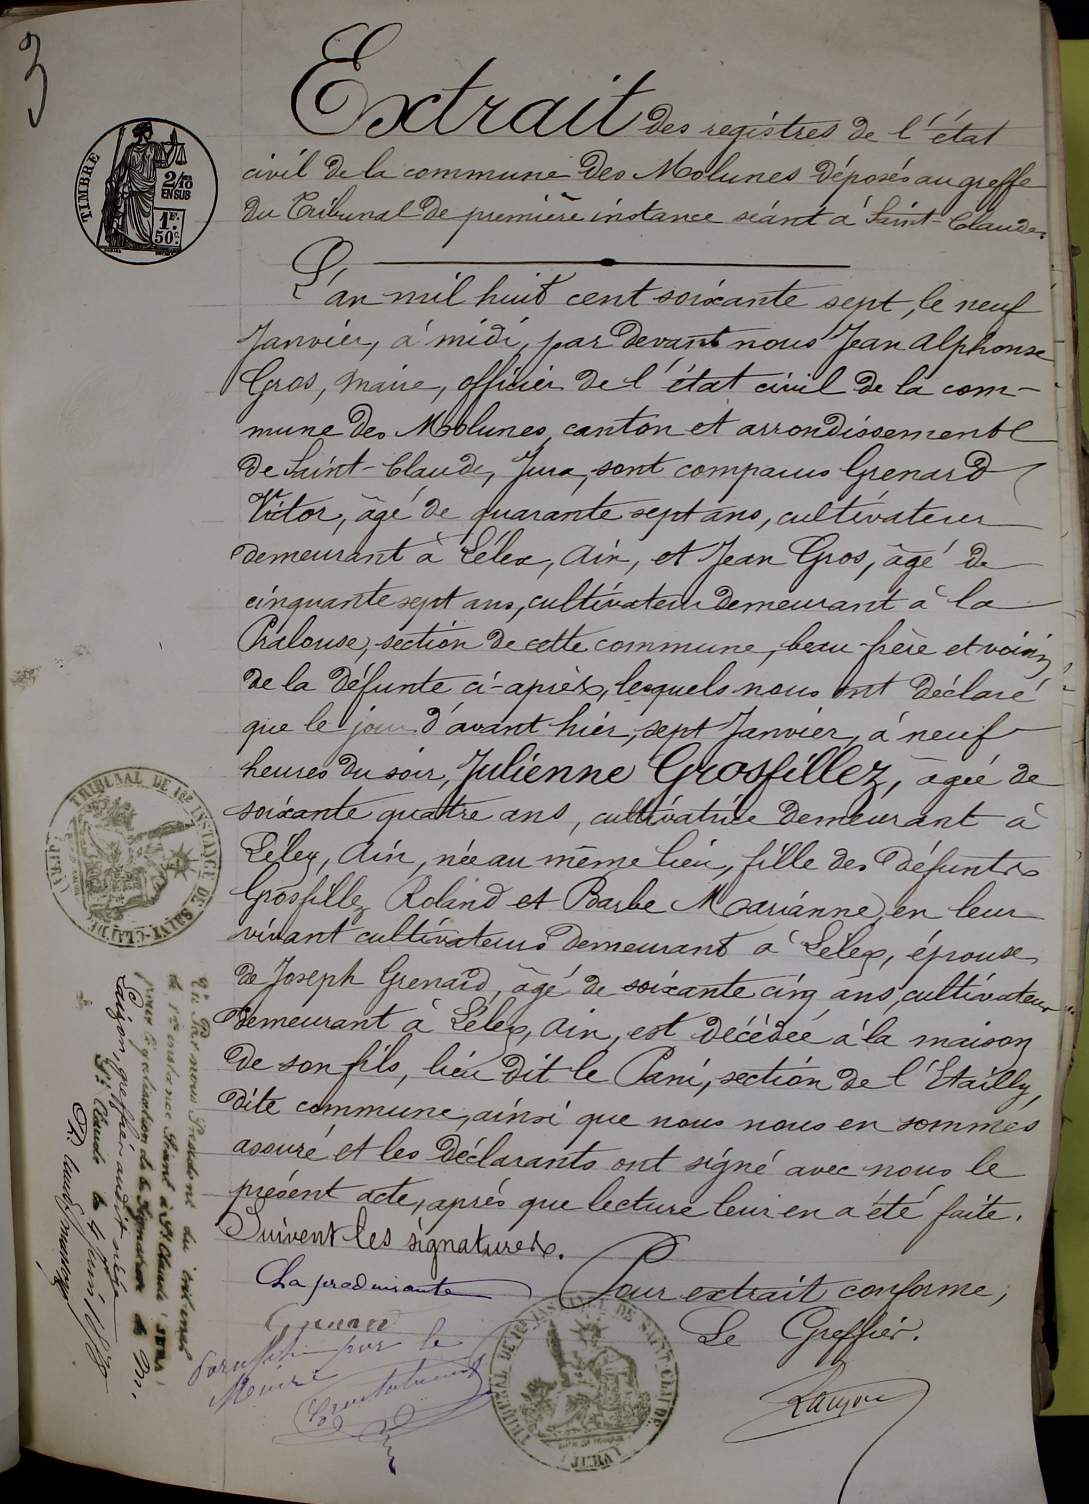 3
TIMBRE
2/10
EN SUS
1F.
50c.
Extrait des registres de l'état
civil de la commune des Molunes déposés au greffe
du Tribunal de première instance séant à Saint-Claude.
L'an mil huit cent soixante sept, le neuf
Janvier, à midi, par devant nous Jean Alphonse
Gros, maire, officier de l'état civil de la com-
mune des Molunes, canton et arrondissement
de Saint-Claude, Jura, sont comparus Grenard
Victor, âgé de quarante sept ans, cultivateur
demeurant à Lélex, Ain, et Jean Gros, âgé de
cinquante sept ans, cultivateur demeurant à la
Pralouse, section de cette commune, beau-frère et voisin
de la défunte ci-après, lesquels nous ont déclaré
que le jour d'avant hier, sept Janvier, à neuf
heures du soir, Julienne Grosfillez, âgée de
soixante quatre ans, cultivatrice demeurant à
Lélex, Ain, née au même lieu, fille des défunts
Grosfillez Roland et Barbe Marianne, en leur
vivant cultivateurs demeurant à Lélex, épouse
de Joseph Grenard, âgé de soixante cinq ans, cultivateur
demeurant à Lélex, Ain, est décédée à la maison
de son fils, lieu dit le Pani, section de l'Etailly,
dite commune, ainsi que nous nous en sommes
assuré et les déclarants ont signé avec nous le
présent acte, après que lecture leur en a été faite.
Suivent les signatures.
Pour extrait conforme,
Le Greffier.
La produisante
pour le
TRIBUNAL DE 1RE INSTANCE DE SAINT-CLAUDE (JURA)
Vu Par nous Président du tribunal
de 1re instance Séant à St Claude (JURA)
Pour légalisation de la Signature de M.
greffier audit siège
St Claude le
TRIBUNAL DE 1RE INSTANCE DE SAINT-CLAUDE (JURA)